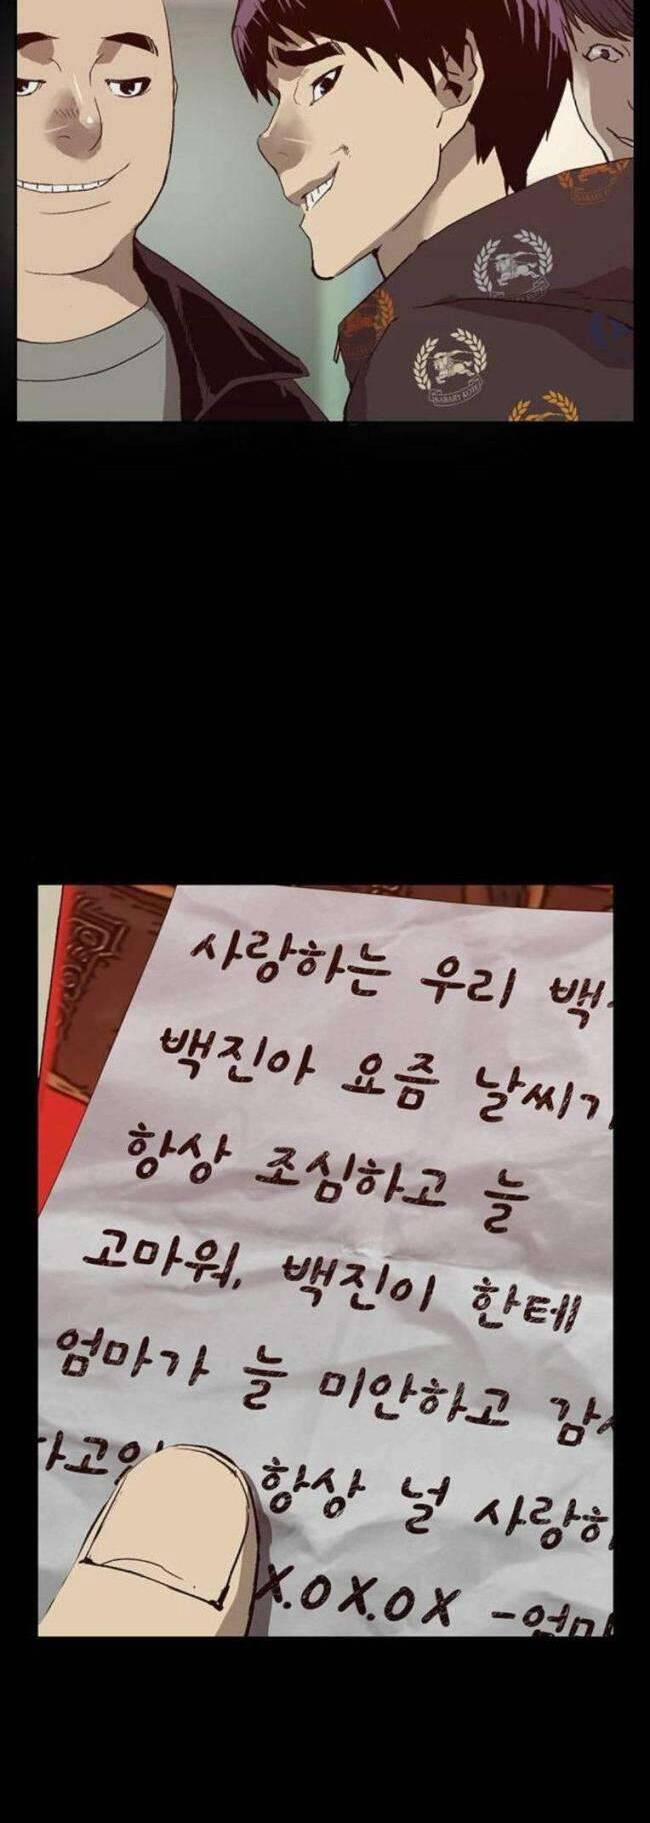 사랑하는 우리
백진아 요즘 날씨가
항상 조심하고 늘
고마워. 백진이 한테
엄마가 늘 미안하고
항상 널
X.O X.O X -엄마